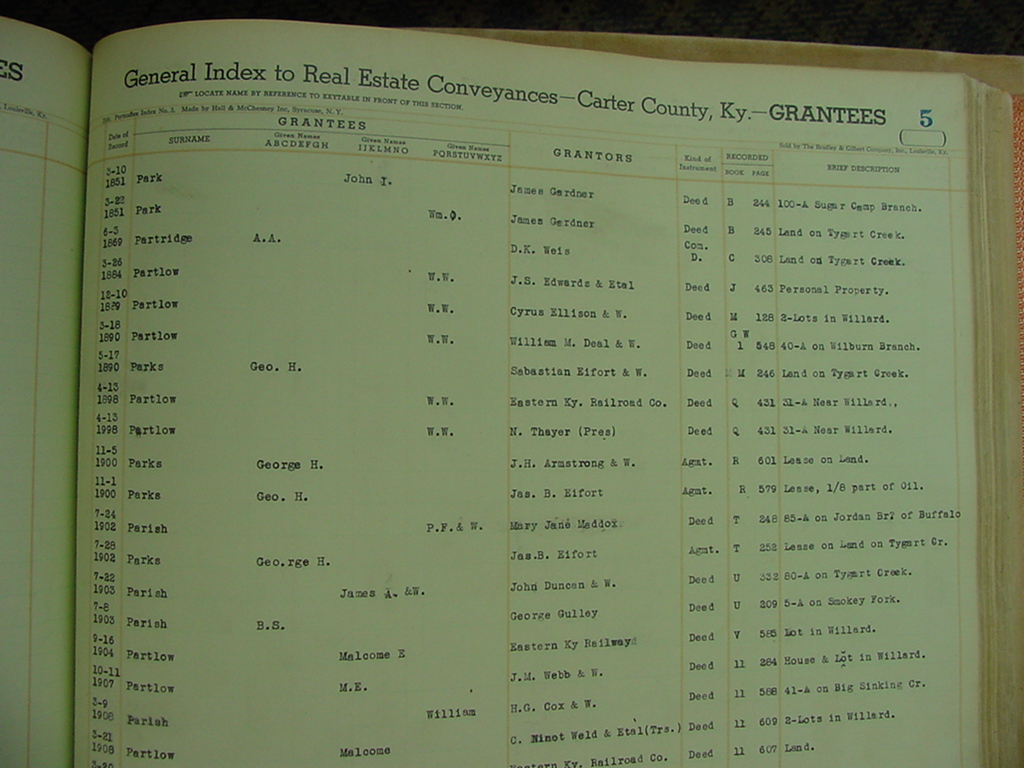 ES
Louisville, Ky.
General Index to Real Estate Conveyances—Carter County, Ky.—GRANTEES 5
LOCATE NAME BY REFERENCE TO KEYTABLE IN FRONT OF THIS SECTION.
Index No. 2. Made by Hall & McChesney Inc, Syracuse, N. Y.
Sold by The Bradley & Gilbert Company, Inc., Louisville, Ky.
GRANTEES
Date of Record SURNAME Given Names ABCDEFGH Given Names IJKLMNO Given Names PQRSTUVWXYZ GRANTORS Kind of Instrument RECORDED BOOK PAGE BRIEF DESCRIPTION
3-10 1851 Park John I. James Gardner Deed B 244 100-A Sugar Camp Branch.
3-22 1851 Park Wm.O. James Gardner Deed B 245 Land on Tygart Creek.
6-3 1869 Partridge A.A. D.K. Weis Com. D. C 308 Land on Tygart Creek.
3-26 1884 Partlow W.W. J.S. Edwards & Etal Deed J 463 Personal Property.
12-10 1889 Partlow W.W. Cyrus Ellison & W. Deed M 128 2-Lots in Willard.
3-18 1890 Partlow W.W. William M. Deal & W. Deed G W 1 548 40-A on Wilburn Branch.
5-17 1890 Parks Geo. H. Sabastian Eifort & W. Deed M 246 Land on Tygart Creek.
4-13 1898 Partlow W.W. Eastern Ky. Railroad Co. Deed Q 431 31-A Near Willard.,
4-13 1998 Partlow W.W. N. Thayer (Pres) Deed Q 431 31-A Near Willard.
11-5 1900 Parks George H. J.H. Armstrong & W. Agmt. R 601 Lease on Land.
11-1 1900 Parks Geo. H. Jas. B. Eifort Agmt. R 579 Lease, 1/8 part of Oil.
7-24 1902 Parish P.F.& W. Mary Jane Maddox Deed T 248 85-A on Jordan Br. of Buffalo
7-28 1902 Parks Geo.rge H. Jas.B. Eifort Agmt. T 252 Lease on Land on Tygart Cr.
7-22 1903 Parish James A. &W. John Duncan & W. Deed U 332 80-A on Tygart Creek.
7-8 1903 Parish B.S. George Gulley Deed U 209 5-A on Smokey Fork.
9-16 1904 Partlow Malcome E Eastern Ky Railway Deed V 585 Lot in Willard.
10-11 1907 Partlow M.E. J.M. Webb & W. Deed 11 284 House & Lot in Willard.
3-9 1908 Parish William H.G. Cox & W. Deed 11 588 41-A on Big Sinking Cr.
3-21 1908 Partlow Malcome C. Minot Weld & Etal(Trs.) Deed 11 609 2-Lots in Willard.
3-20 Eastern Ky. Railroad Co. Deed 11 607 Land.